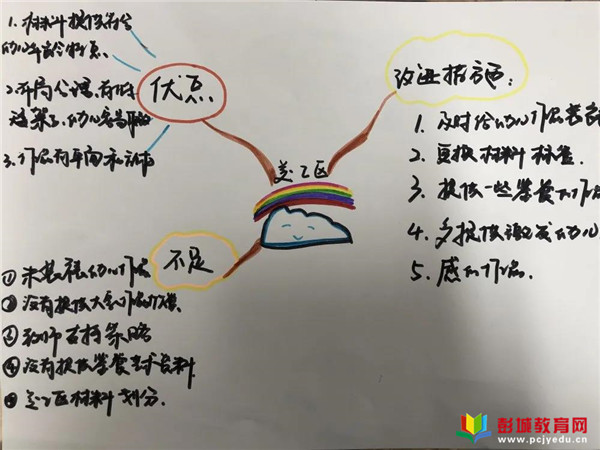 1. 材料提供符合
幼儿年龄特点、
2.布局合理,
幼儿容易
3. 作品有平面和立体
优点
美工区
改进措施:
1. 及时给幼儿作品
2. 更换材料标签.
3. 提供一些鉴赏的作品
4. 多提供激发幼儿
5. 感的作品.
不足
① 未装裱幼儿作品
② 没有提供大型作品
③ 教师支持策略
④ 没有提供鉴赏美术资料
⑤ 美工区材料划分.
彭城教育网
www.pcjyedu.cn